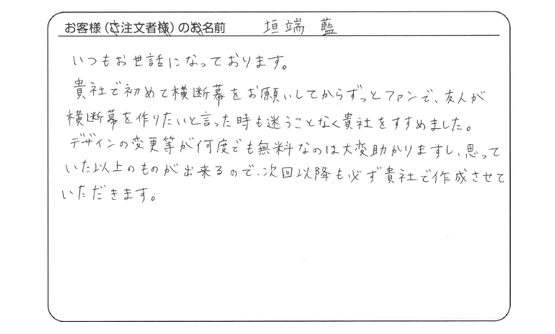 お客様（ご注文者様）のお名前　垣端 藍
いつもお世話になっております。
貴社で初めて横断幕をお願いしてからずっとファンで、友人が
横断幕を作りたいと言った時も迷うことなく貴社をすすめました。
デザインの変更等が何度でも無料なのは大変助かりますし、思って
いた以上のものが出来るので、次回以降も必ず貴社で作成させて
いただきます。